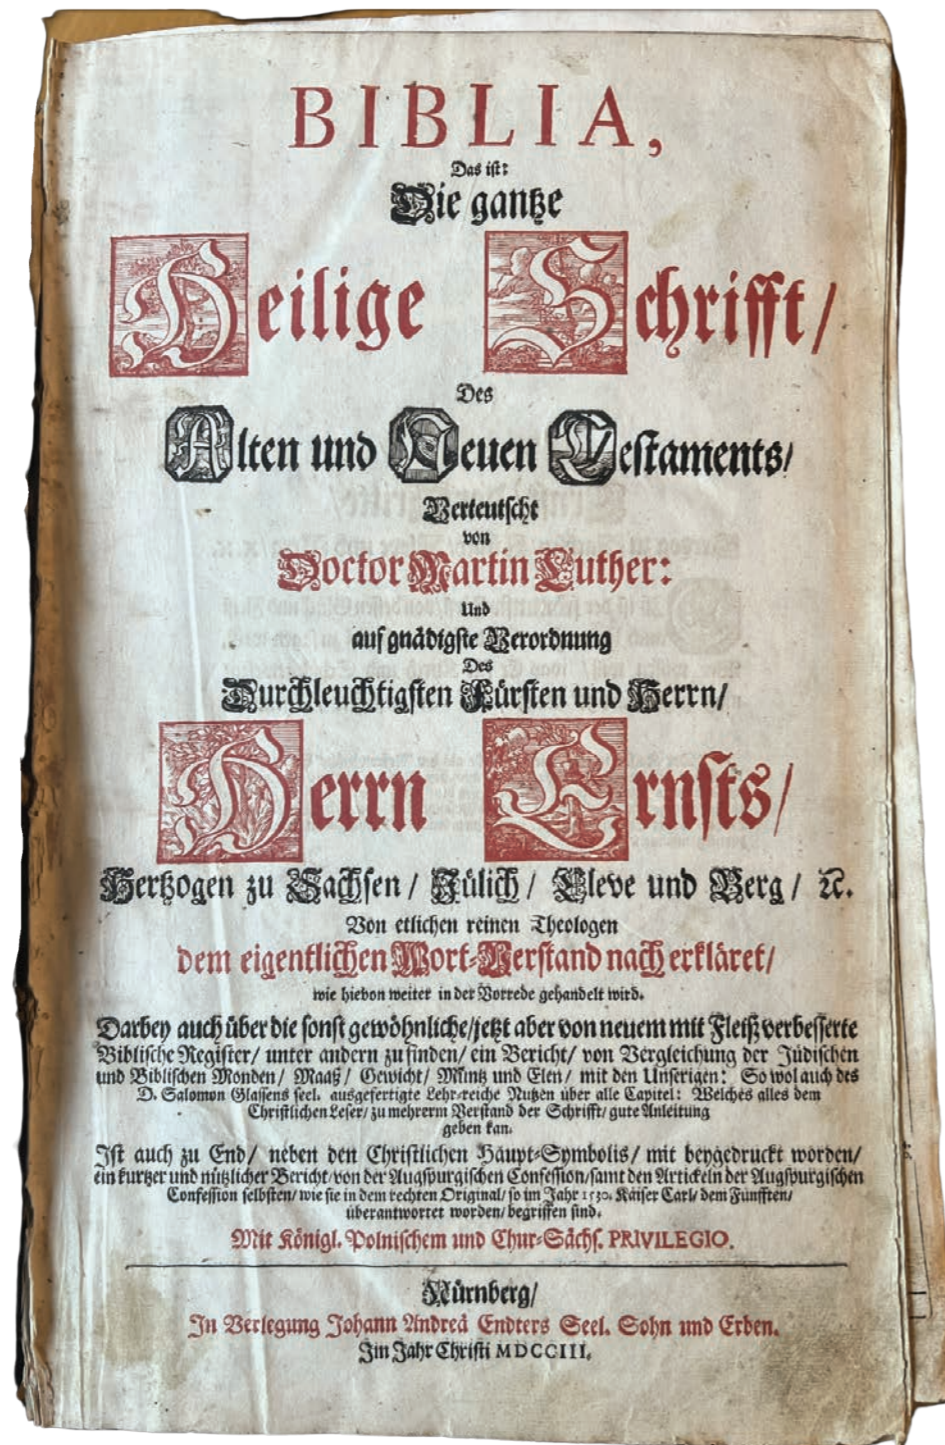 BIBLIA,
Das ist:
Die gantze
Heilige Schrifft/
Des
Alten und Neuen Testaments/
Verteutscht
von
Doctor Martin Luther:
Und
auf gnädigste Verordnung
Des
Durchleuchtigsten Fürsten und Herrn/
Herrn Ernsts/
Hertzogen zu Sachsen/ Jülich/ Cleve und Berg/ ꝛc.
Von etlichen reinen Theologen
dem eigentlichen Wort-Verstand nach erkläret/
wie hievon weiter in der Vorrede gehandelt wird.
Darbey auch über die sonst gewöhnliche/ jetzt aber von neuem mit Fleiß verbesserte
Biblische Register/ unter andern zu finden/ ein Bericht/ von Vergleichung der Jüdischen
und Biblischen Monden/ Maaß/ Gewicht/ Müntz und Elen/ mit den Unserigen: So wol auch des
D. Salomon Glassens seel. ausgefertigte Lehr-reiche Nutzen über alle Capitel: Welches alles dem
Christlichen Leser/ zu mehrerm Verstand der Schrifft/ gute Anleitung
geben kan.
Ist auch zu End/ neben den Christlichen Haupt-Symbolis/ mit beygedruckt worden/
ein kurtzer und nützlicher Bericht/ von der Augspurgischen Confession/ samt den Artickeln der Augspurgischen
Confession selbsten/ wie sie in dem rechten Original/ so im Jahr 1530. Käiser Carl/ dem Fünfften/
überantwortet worden/ begriffen sind.
Mit Königl. Polnischem und Chur-Sächs. PRIVILEGIO.
Nürnberg/
In Verlegung Johann Andreä Endters Seel. Sohn und Erben.
Im Jahr Christi MDCCIII.